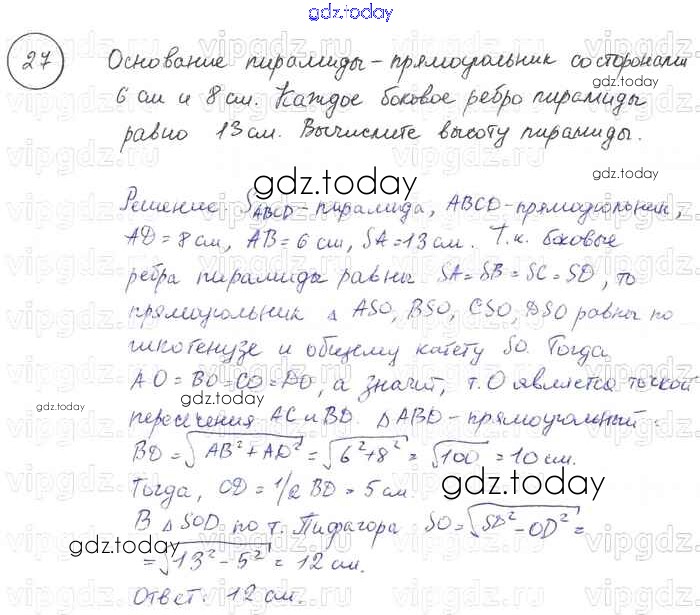 gdz.today
27
Основание пирамиды - прямоугольник со сторонами
6 см и 8 см. Каждое боковое ребро пирамиды
равно 13 см. Вычислите высоту пирамиды.
gdz.today
gdz.today
Решение S_ABCD - пирамида, ABCD - прямоугольник,
AD = 8 см, AB = 6 см, SA = 13 см. Т.к. боковые
ребра пирамиды равны SA = SB = SC = SD, то
прямоугольник Δ ASO, BSO, CSO, DSO равны по
гипотенузе и общему катету SO. Тогда
AO = BO = CO = DO, а значит, т. O является точкой
gdz.today
пересечения AC и BD. Δ ABD - прямоугольный.
BD = √(AB² + AD²) = √(6² + 8²) = √100 = 10 см.
Тогда, OD = 1/2 BD = 5 см.
gdz.today
В Δ SOD по т. Пифагора SO = √(SD² - OD²) =
gdz.today
= √(13² - 5²) = 12 см.
Ответ: 12 см.
gdz.today
vipgdz.ru